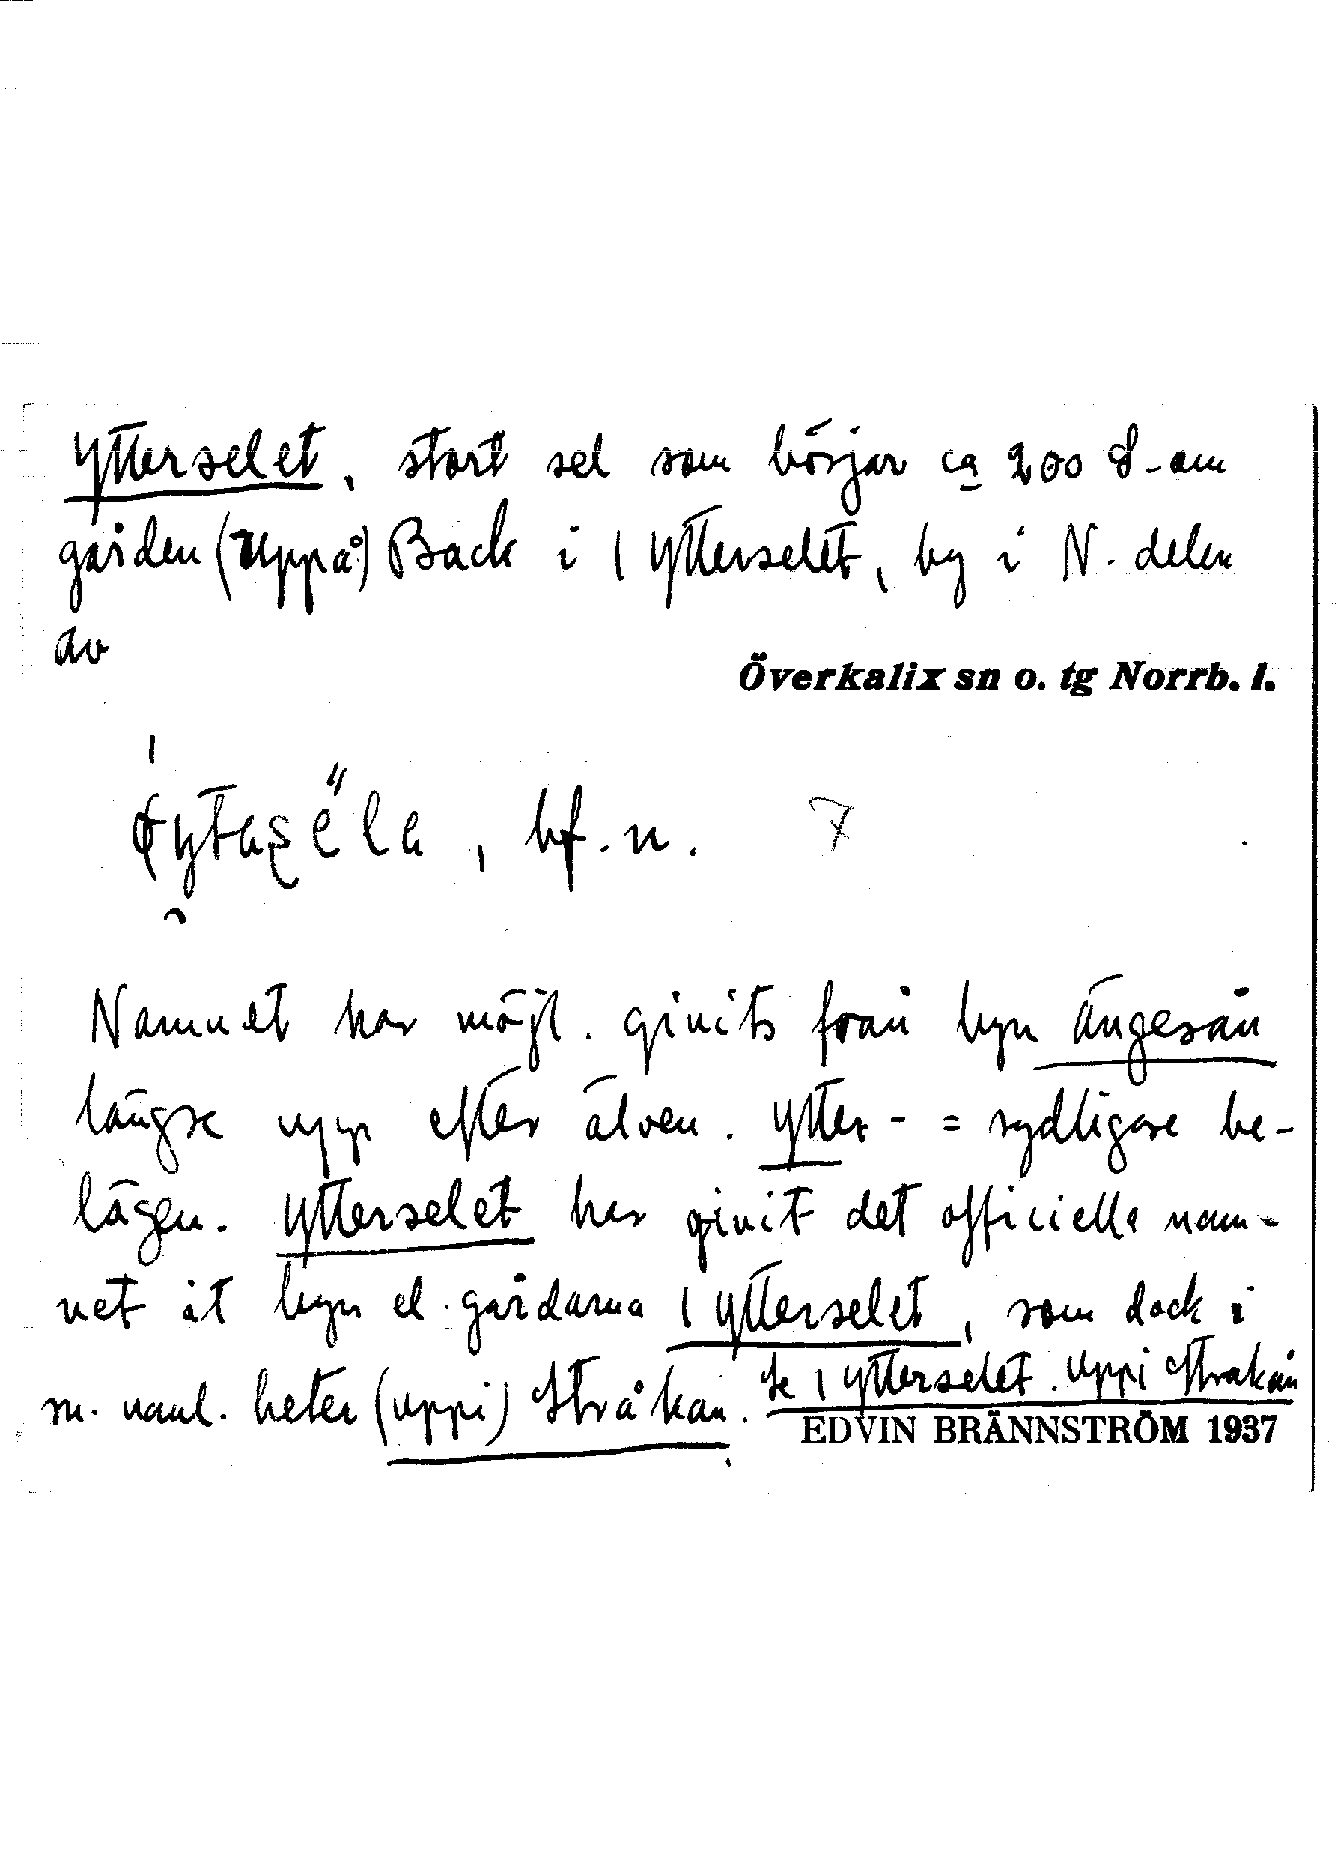 Ytterselet, stort sel som börjar ca 200 S-om
gården (Uppå) Back i 1 Ytterselet, by i N. delen
av
Överkalix sn o. tg Norrb. l.
bf. n.
Namnet har möjl. givits från byn Ängesån
längre upp efter älven. Ytter- = sydligare be-
lägen. Ytterselet har givit det officiella nam-
net åt byn el. gårdarna 1 Ytterselet, som dock i
m. namt. heter (uppi) Stråkan. Se 1 Ytterselet. Uppi Stråkan
EDVIN BRÄNNSTRÖM 1937